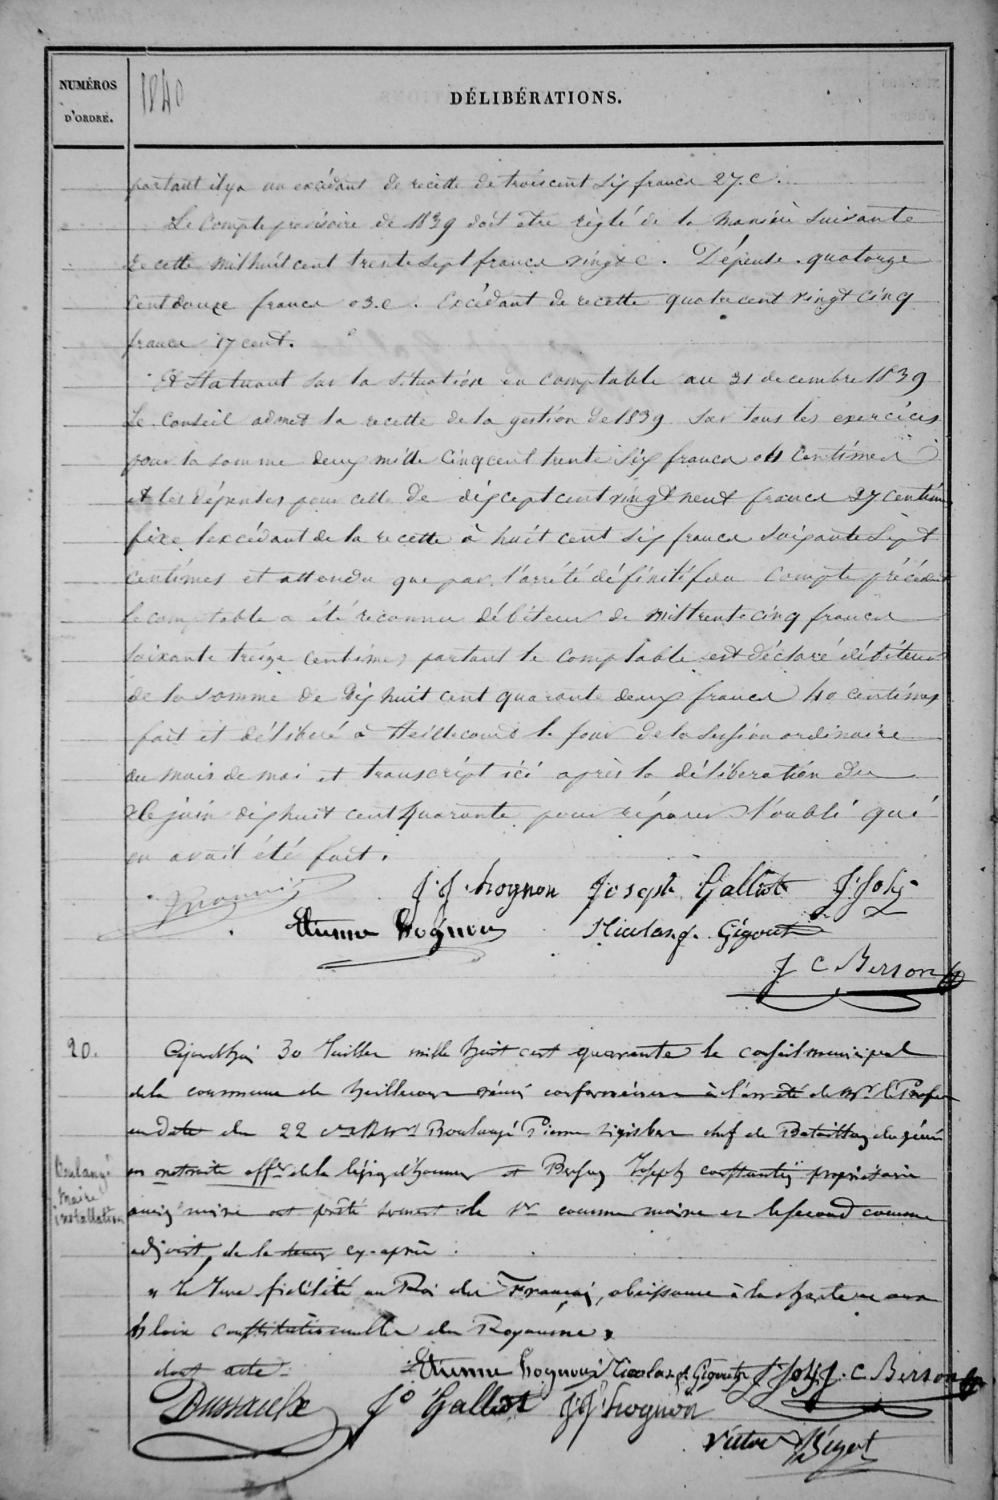 NUMÉROS
D'ORDRE.
1840
DÉLIBÉRATIONS.
partant il y a un excédant de recette de trois cent six francs 27. c.
Le Compte provisoire de 1839 doit etre réglé de la manière suivante
recette mil huit cent trente sept francs vingt c. Dépense. quatorze
cent douze francs 03. c. Excédant de recette quatre cent vingt cinq
francs 17 cent.
Et Statuant sur la situation en comptable au 31 decembre 1839
Le Conseil admet la recette de la gestion de 1839 sur tous les exercices
pour la somme deux mille cinq cent trente six francs 04 Centimes
et les dépenses pour celle de dix cept cent vingt neuf francs 37 centimes
fixe l'excédant de la recette à huit cent six francs soixante sept
centimes et attendu que par l'arrêté définitif du Compte précédent
le comptable a été reconnu débiteur de mil trente cinq francs
soixante treize centimes partant le comptable est déclaré débiteur
de la somme de dix huit cent quarante deux francs 40 centimes
fait et délibéré à Heillecourt le jour de la session ordinaire
du mois de mai et transcript ici après la délibération du
juin dix huit cent quarante pour réparer l'oubli qui
en avait été fait.
J. J. hognon Joseph Galliot J. Joly
Etienne hognon Nicolas f. Gigout
J C Berson
20.
Ajourdhui 30 Juillet mille huit cent quarante le conseil municipal
de la commune de heillecourt réuni conformément à l'arrêté de Mr le Préfet
en date du 22 Boulangé Pierre chef de Bataillon du génie
en retraite offr de la légion d'honneur et Joseph constantin propriétaire
Boulangé
maire
installation
ont prêté serment le 1er comme maire et le second comme
adjoint, de la teneur cy-après.
" Je Jure fidélité au Roi des Français, obéissance à la charte et aux
lois constitutionnelles du Royaume.
dont acte.
Etienne hognon Nicolas f. Gigout J Joly J. C Berson
J. Galliot J. J. hognon
Victor